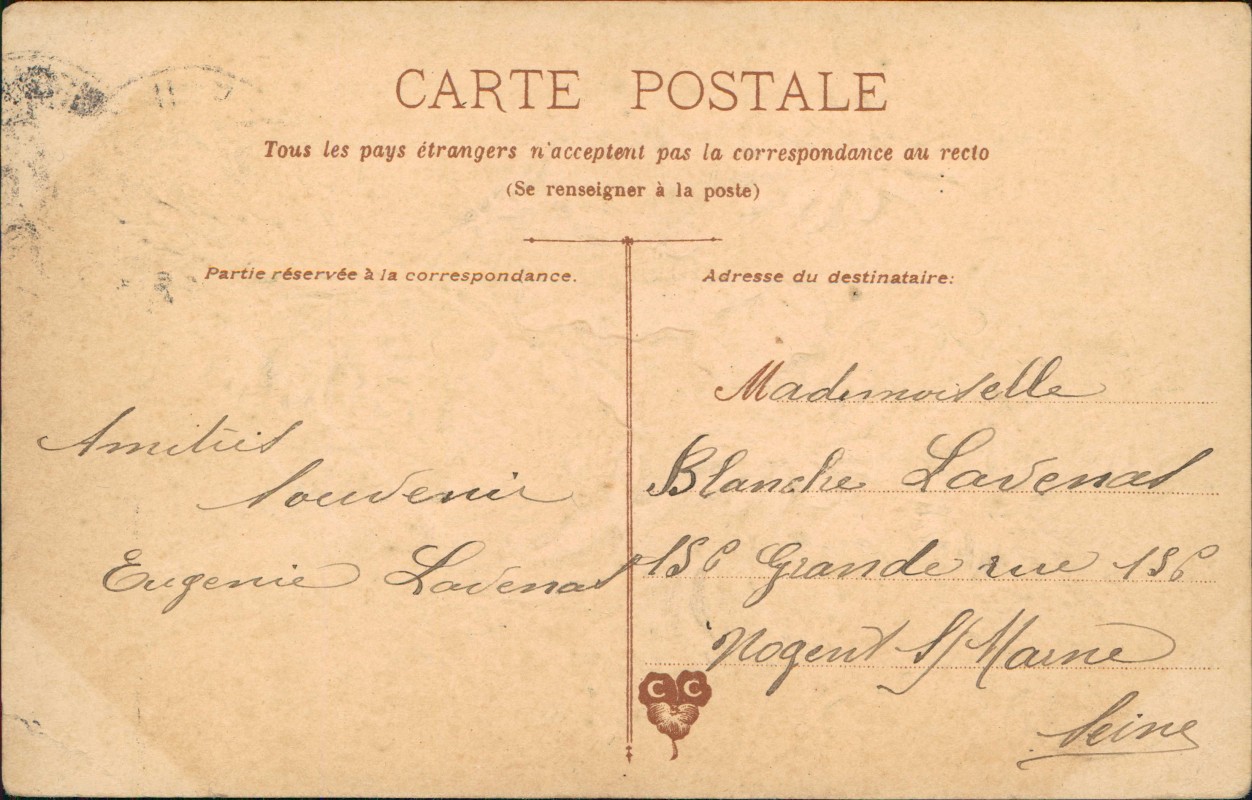 CARTE POSTALE
Tous les pays étrangers n'acceptent pas la correspondance au recto
(Se renseigner à la poste)
Partie réservée à la correspondance.
Amitiés
Souvenir
Eugenie Lavenas
Adresse du destinataire:
Mademoiselle
Blanche Lavenas
156 Grande rue 156
Nogent S/Marne
Seine
C C